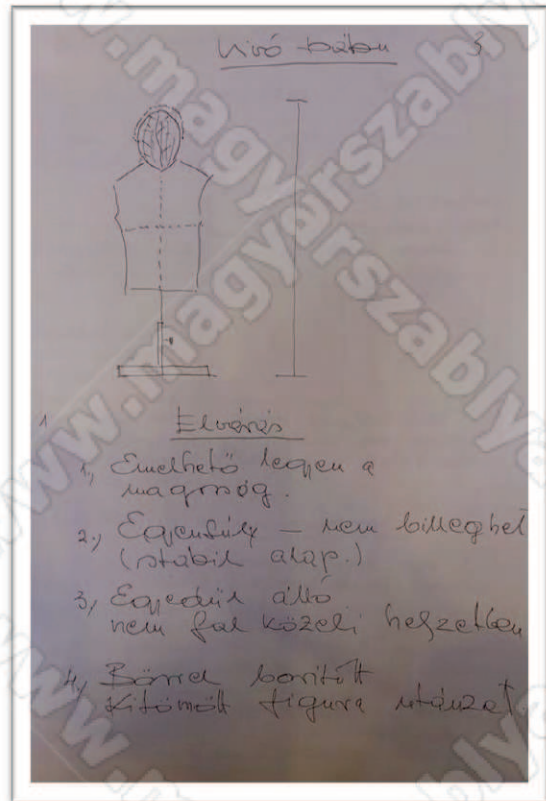 Vívó bábu 3
1
Elvárás
1, Emelhető legyen a
magasság.
2., Egyensúly – nem billeghet
(stabil alap.)
3, Egyedül álló
nem fal közeli helyzetben
4, Bőrrel borított
Kitömött figura utánzat
www.magyarszablya
www.magyarszablya